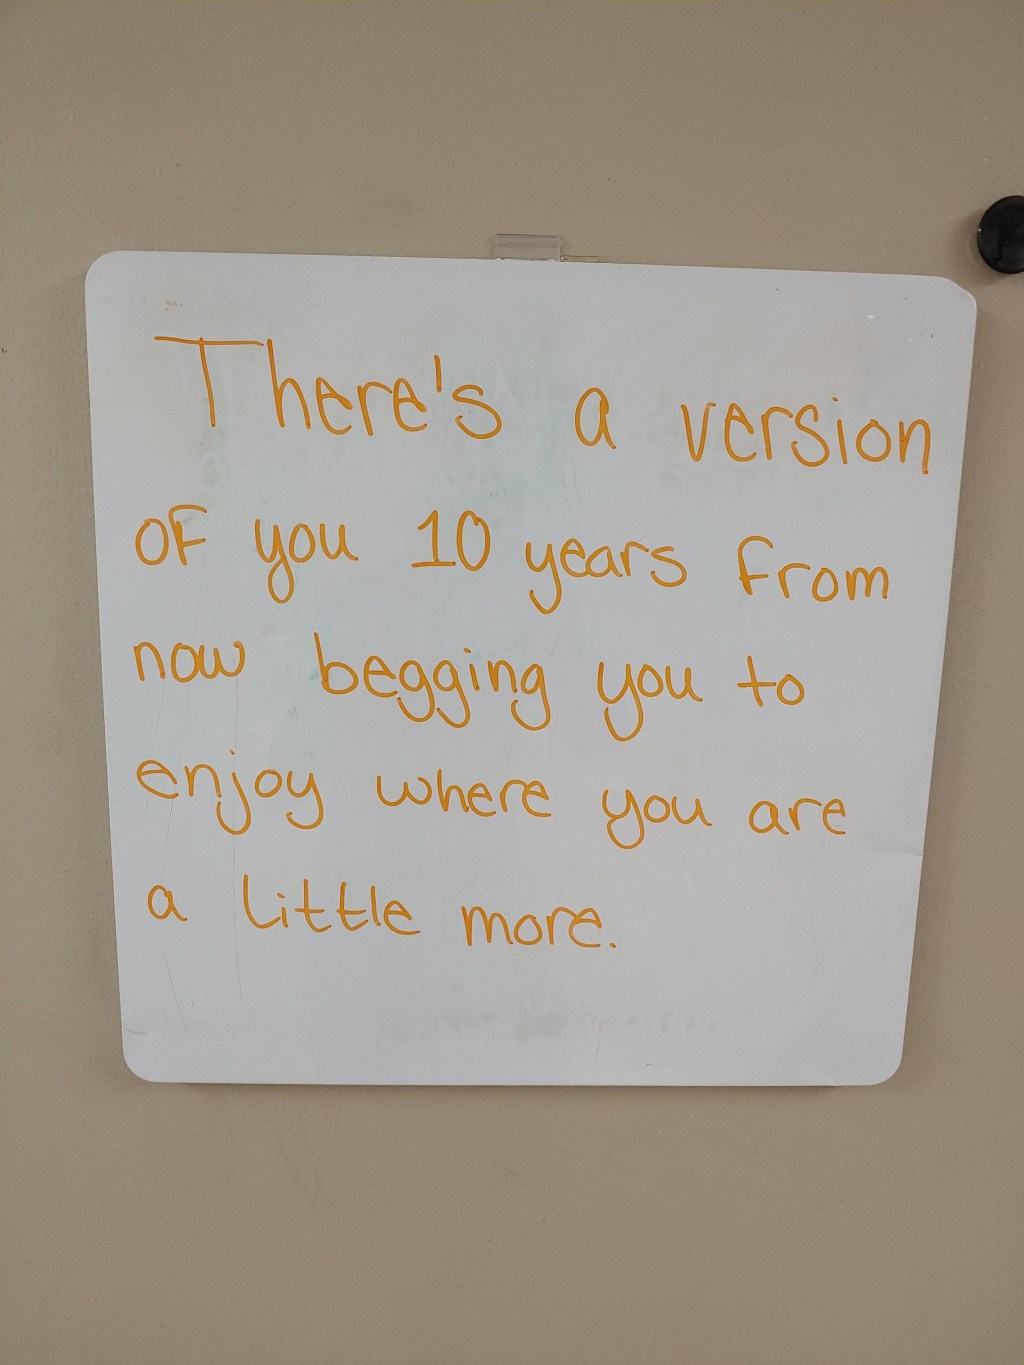 There's a version
of you 10 years from
now begging you to
enjoy where you are
a little more.